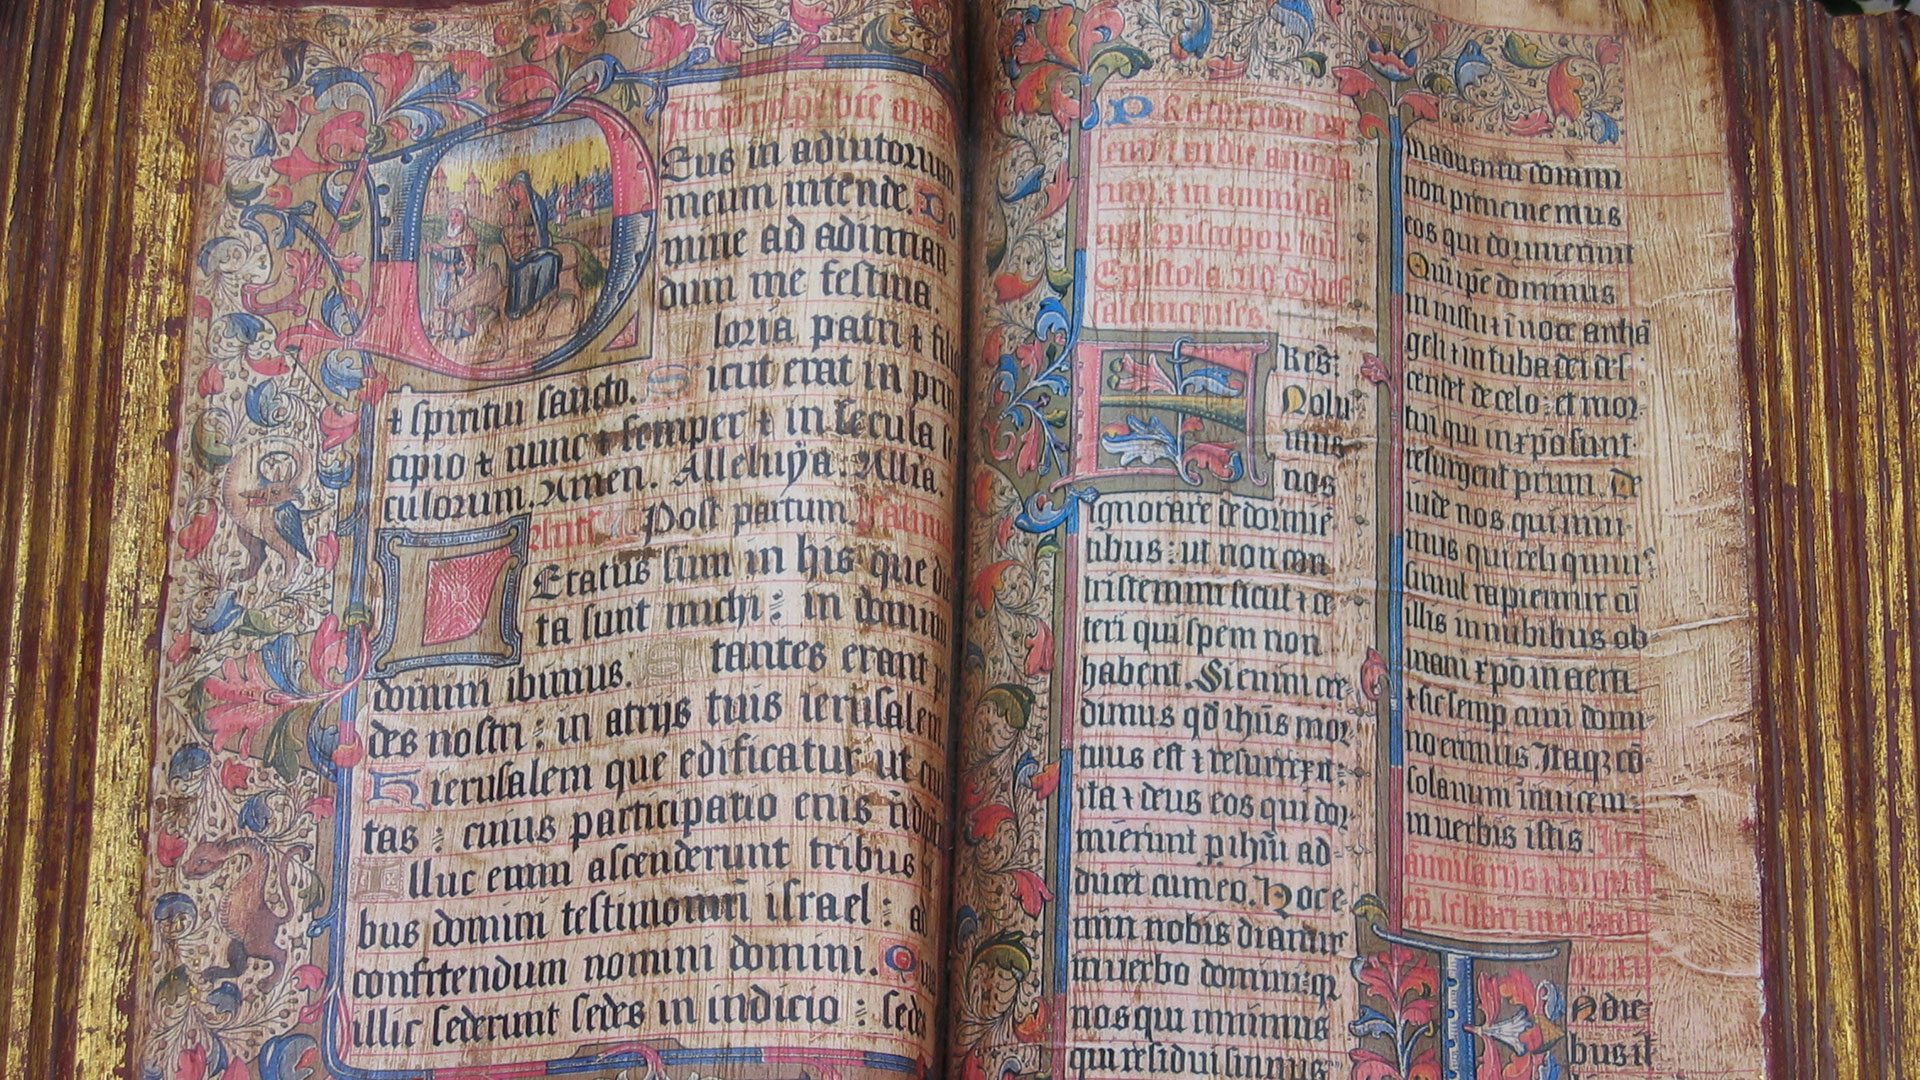 Eus in adiutorium
meum intende. Do
mine ad adiuuan
dum me festina.
loria patri ⁊ filio
⁊ spiritui sancto. Sicut erat in prin
cipio ⁊ nunc ⁊ semper ⁊ in secula se
culorum. Amen. Alleluya. Allia.
Post partum.
Etatus sum in his que dic
ta sunt michi : in domum
domini ibimus. Stantes erant pe
des nostri : in atrijs tuis ierusalem.
Hierusalem que edificatur ut ciui
tas : cuius participatio eius
Illuc enim ascenderunt tribus tri
bus domini testimonium israel : ad
confitendum nomini domini. Quia
illic sederunt sedes in iudicio : sedes
Epistola. Ad Thes
salonicenses
Res.
Nolu
mus
nos
ignorare de dormiē
tibus : ut non con
tristemini sicut ⁊ ce
teri qui spem non
habent. Si enim cre
dimus qd ihūs mor
tuus est ⁊ resurrexit :
ita ⁊ deus eos qui dor
mierunt p ihū ad
ducet cum eo. Hoc e
nim nobis dicimus
in uerbo domini : q
nos qui uiuimus
qui residui sumus
in aduentu domini
non preueniemus
eos qui dormierunt
Qm ipe dominus
in iussu ⁊ ī uoce archā
geli ⁊ in tuba dei des
cendet de celo : et mor
tui qui in xpo sunt
resurgent primi. De
inde nos qui uiui
mus qui relīquimr
simul rapiemur cū
illis in nubibus ob
uiam xpo in aera
⁊ sic semp cum domi
no erimus. Itaq cō
solamini inuicem :
in uerbis istis. In
ep. libri machabe
N die
bus il